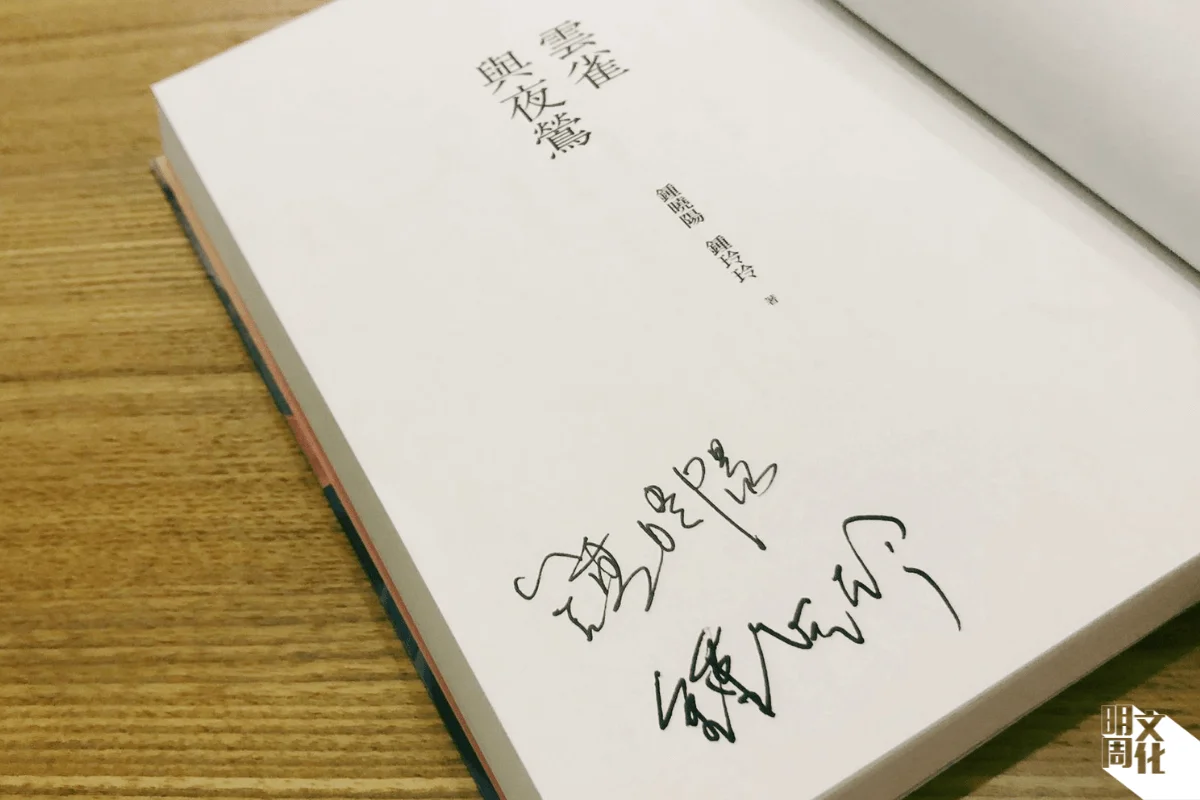 雲雀
與夜鶯
鍾曉陽 鍾玲玲 著
鍾曉陽
鍾玲玲
明周文化